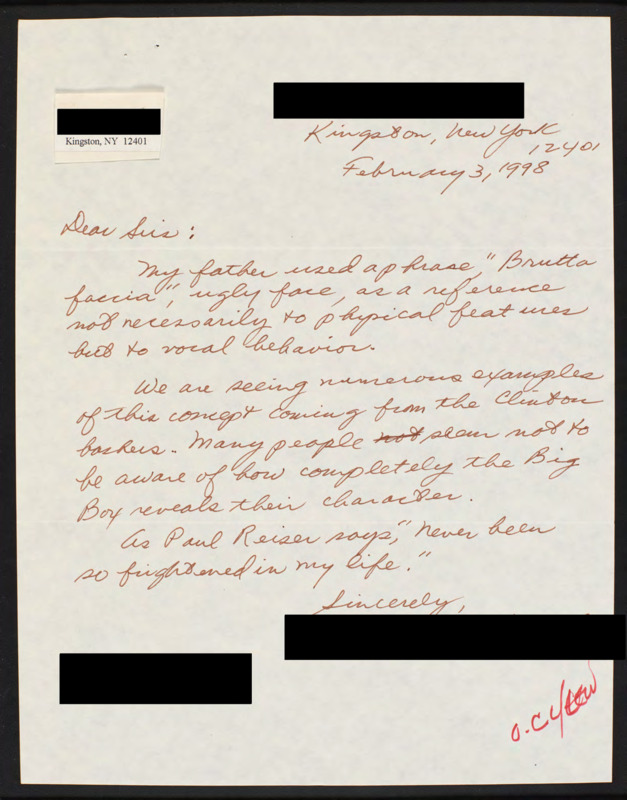 Kingston, NY 12401
Kingston, New York
12401
February 3, 1998
Dear Sirs:
My father used a phrase, "Brutta
faccia", ugly face, as a reference
not necessarily to physical features
but to vocal behavior.
We are seeing numerous examples
of this concept coming from the Clinton
bashers. Many people not seem not to
be aware of how completely the Big
Box reveals their character.
As Paul Reiser says, "Never been
so frightened in my life."
Sincerely,
O.C.